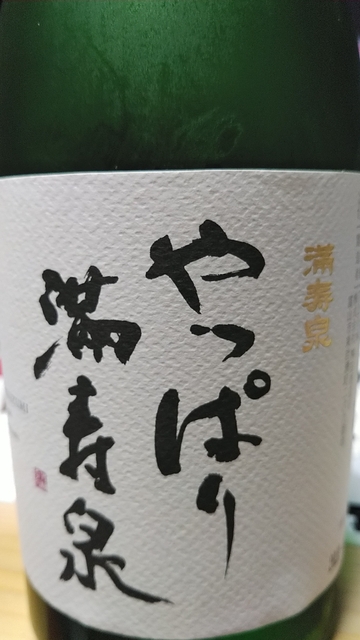 満寿泉
やっぱり
満寿泉